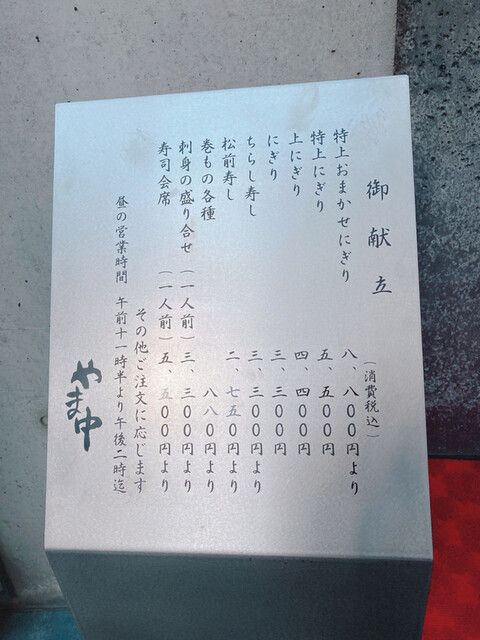 御献立
(消費税込)
特上おまかせにぎり 八、八〇〇円より
特上にぎり 五、五〇〇円
上にぎり 四、四〇〇円
にぎり 三、三〇〇円
ちらし寿し 三、三〇〇円より
松前寿し 二、七五〇円より
巻もの各種 八八〇円より
刺身の盛り合せ (一人前) 三、三〇〇円より
寿司会席 (一人前) 五、五〇〇円より
その他ご注文に応じます
昼の営業時間 午前十一時半より午後二時迄
やま中